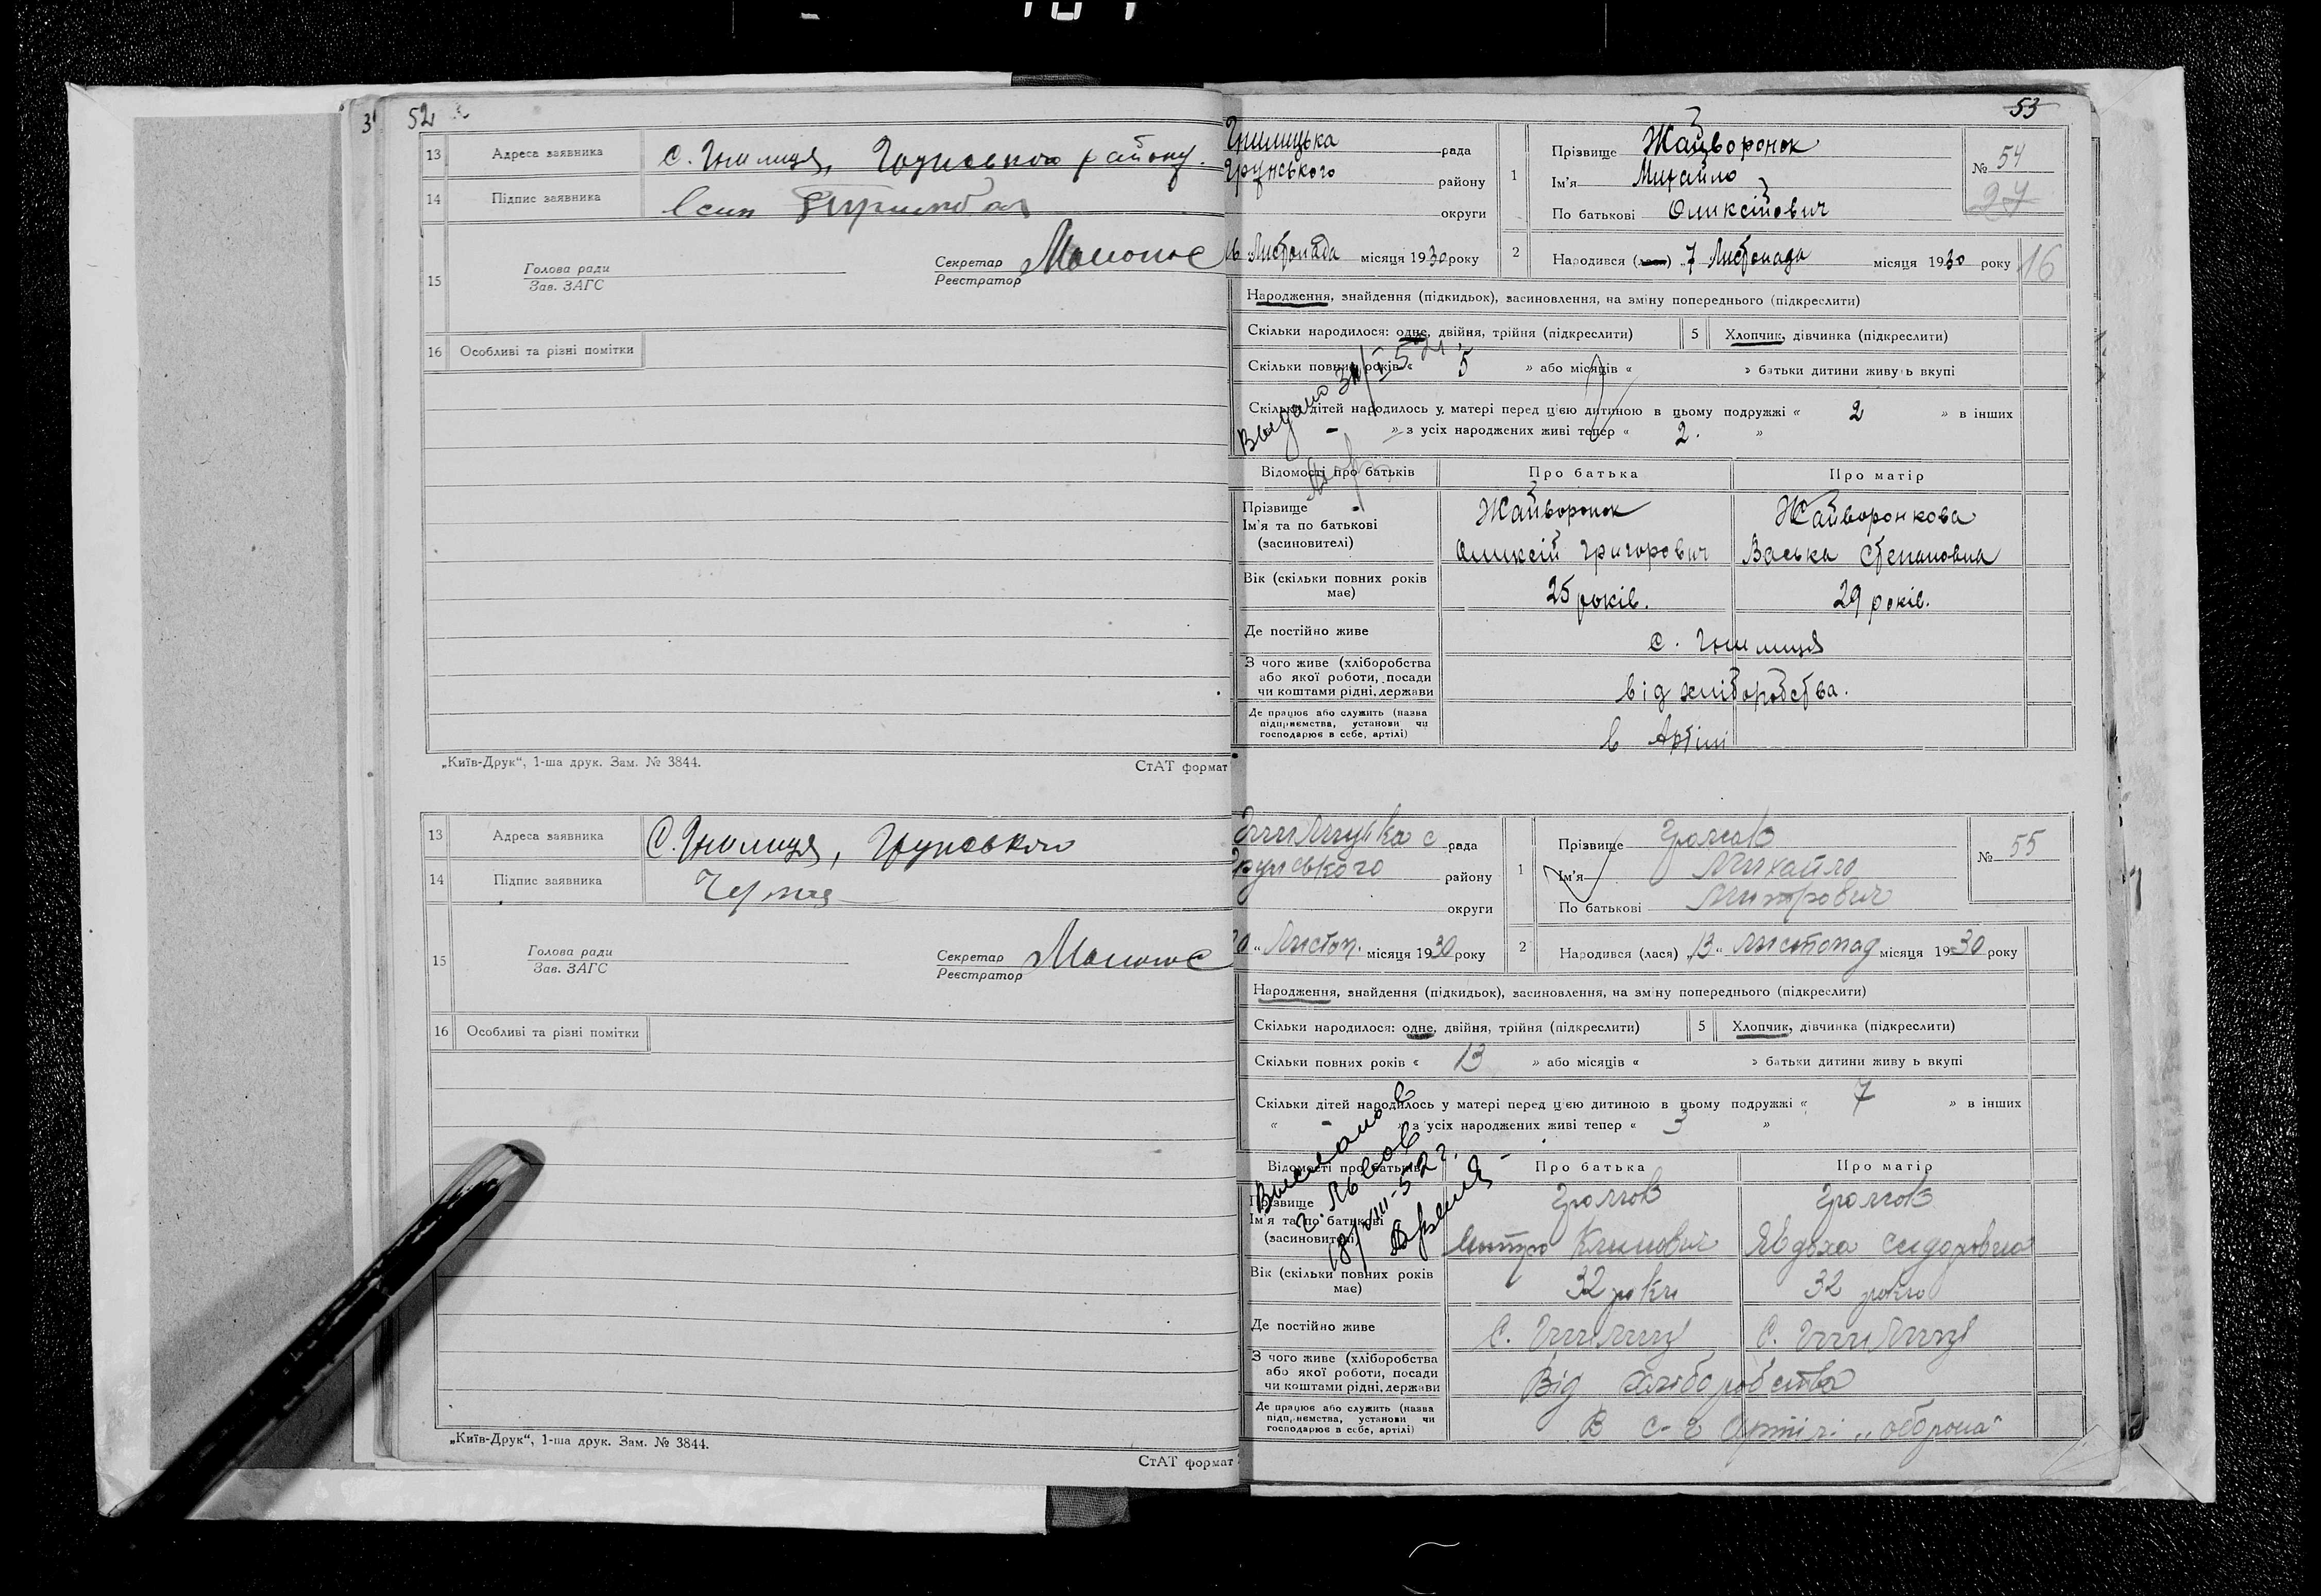 52
13 Адреса заявника С. Гнилиця, Грунського району.
14 Підпис заявника
15 Голова ради
Зав. ЗАГС
Секретар
Реєстратор
16 Особливі та різні помітки
„Київ-Друк“, 1-ша друк. Зам. № 3844.
СтАТ формат
13 Адреса заявника С. Гнилиця, Грунського
14 Підпис заявника
15 Голова ради
Зав. ЗАГС
Секретар
Реєстратор
16 Особливі та різні помітки
„Київ-Друк“, 1-ша друк. Зам. № 3844.
СтАТ формат
53
Гнилицька рада
Грунського району
округи
1 Прізвище Жайворонок
Ім'я Михайло
По батькові Оликсійович
№ 54
27
16 Листопада місяця 1930 року
2 Народився (лася) „7 Листопада місяця 1930 року
16
Народження, знайдення (підкидьок), засиновлення, на зміну попереднього (підкреслити)
Скільки народилося: одне, двійня, трійня (підкреслити) 5 Хлопчик, дівчинка (підкреслити)
Скільки повних років « 5 » або місяців « » батьки дитини живуть вкупі
Скільки дітей народилось у матері перед цією дитиною в цьому подружжі « 2 » в інших
- » з усіх народжених живі тепер « 2. »
Выдано
Відомості про батьків Про батька Про матір
Прізвище Жайворонок Жайворонкова
Ім'я та по батькові
(засиновителі) Оликсій Григорович Васька Степановна
Вік (скільки повних років
має) 25 років. 29 років.
Де постійно живе с. Гнилиця
З чого живе (хліборобства
або якої роботи, посади
чи коштами рідні, держави від хліборобства.
Де працює або служить (назва
підприємства, установи чи
господарює в себе, артілі) в Артілі
Гнилицька с рада
Грунського району
округи
1 Прізвище
Ім'я Михайло
По батькові Митрович
№ 55
20 „ Листоп. місяця 1930 року
2 Народився (лася) „13“ листопад місяця 1930 року
Народження, знайдення (підкидьок), засиновлення, на зміну попереднього (підкреслити)
Скільки народилося: одне, двійня, трійня (підкреслити) 5 Хлопчик, дівчинка (підкреслити)
Скільки повних років « 13 » або місяців « » батьки дитини живу ь вкупі
Скільки дітей народилось у матері перед цією дитиною в цьому подружжі « 7 » в інших
« - » з усіх народжених живі тепер « 3 »
Выслано в
г. Львов
18/VIII-52 г.
Відомості про батьків Про батька Про матір
Прізвище
Ім'я та по батькові
(засиновителі) Климович Явдоха Сидоровна
Вік (скільки повних років
має) 32 роки 32 роки
Де постійно живе С. Гнилиці С. Гнилиці
З чого живе (хліборобства
або якої роботи, посади
чи коштами рідні, держави Від хліборобства
Де працює або служить (назва
підприємства, установи чи
господарює в себе, артілі) В с-г Артілі „оборона“